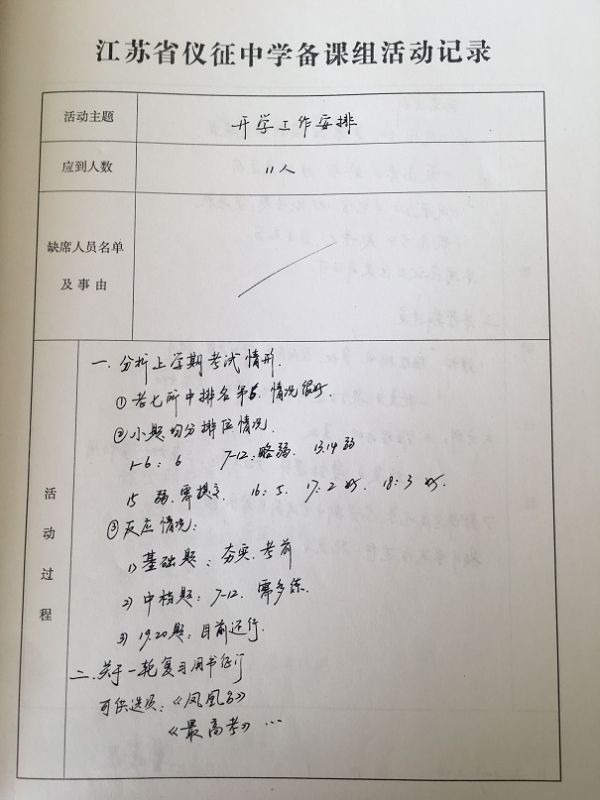 江苏省仪征中学备课组活动记录
活动主题
开学工作安排
应到人数
11人
缺席人员名单
及事由
活动过程
一. 分析上学期考试情形.
①老七所中排名第5. 情况很好.
②小题均分排位情况.
1-6: 6 7-12: 略弱. 13.14 弱
15 弱. 需提高. 16: 5. 17: 2 好. 18: 3 好.
③反应情况:
1) 基础题: 夯实. 考前
2) 中档题: 7-12. 需多练.
3) 19.20题: 目前还行.
二. 关于一轮复习用书征订
可供选项:《凤凰台》
《最高考》…